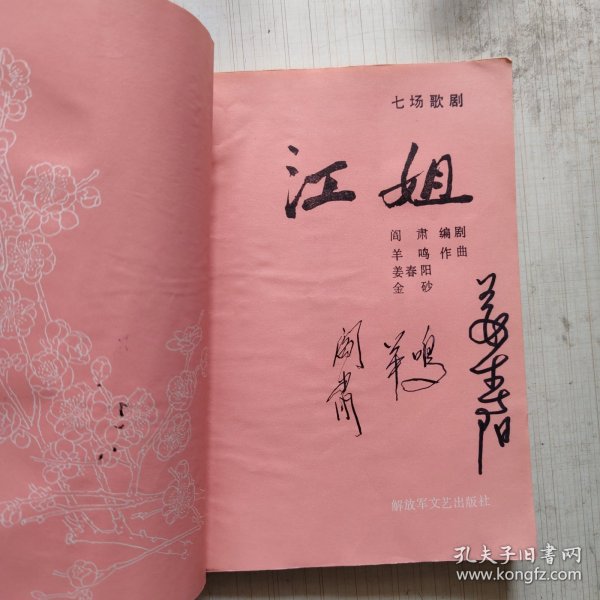 七场歌剧
江姐
阎肃编剧
羊鸣作曲
姜春阳
金砂
阎肃
羊鸣
姜春阳
解放军文艺出版社
孔夫子旧书网
www.kongfz.com